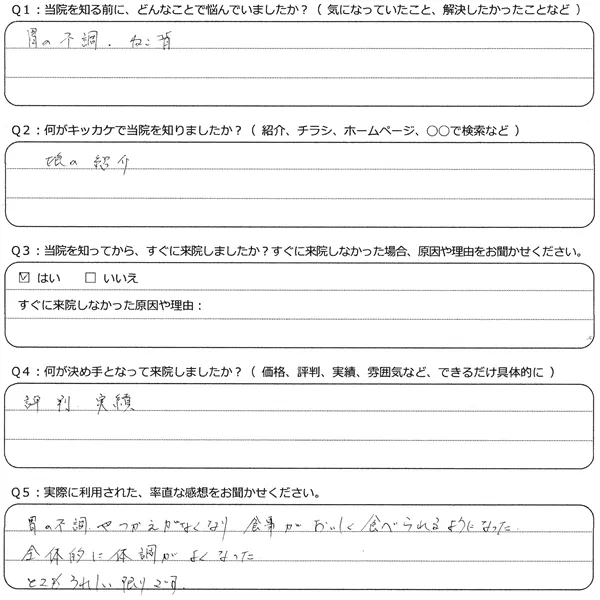 Q1：当院を知る前に、どんなことで悩んでいましたか？（ 気になっていたこと、解決したかったことなど ）
胃の不調、ねこ背
Q2：何がキッカケで当院を知りましたか？（ 紹介、チラシ、ホームページ、〇〇で検索など ）
娘の紹介
Q3：当院を知ってから、すぐに来院しましたか？すぐに来院しなかった場合、原因や理由をお聞かせください。
☑ はい　□ いいえ
すぐに来院しなかった原因や理由：
Q4：何が決め手となって来院しましたか？（ 価格、評判、実績、雰囲気など、できるだけ具体的に ）
評判、実績
Q5：実際に利用された、率直な感想をお聞かせください。
胃の不調やつかえがなくなり食事がおいしく食べられるようになった
全体的に体調がよくなった
とてもうれしい限りです。